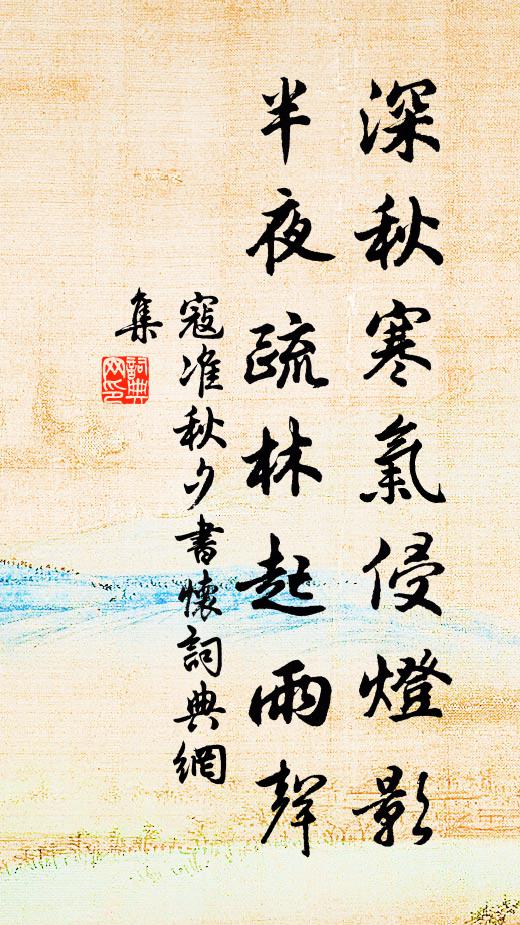 深秋寒氣侵燈影
半夜疏林起雨聲
寇准秋夕書懷詞典網
集
詞典
网印